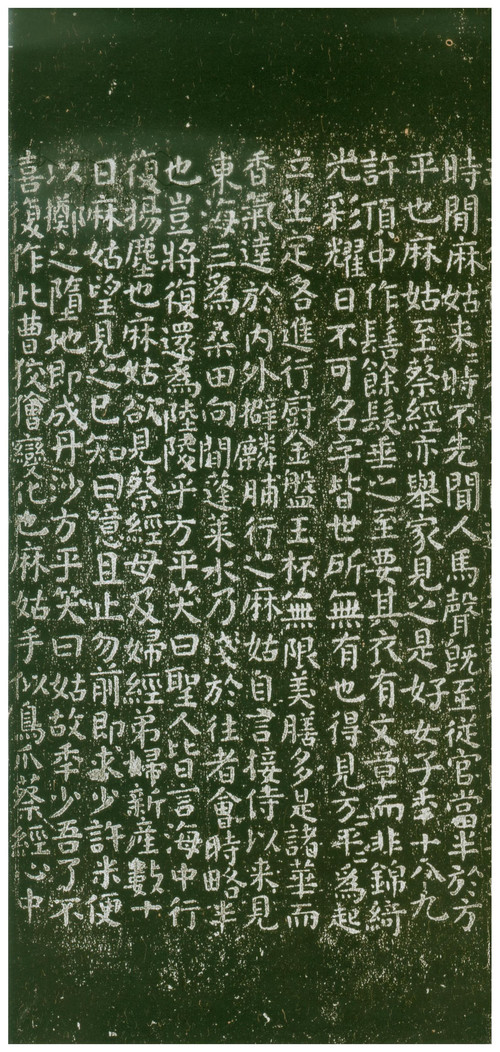 時間麻姑来〻時不先聞人馬聲既至従官當半於方
平也麻姑至蔡經亦舉家見之是好女子秊十八九
許頂中作髻餘髮垂之至要其衣有文章而非錦綺
光彩耀日不可名字皆世所無有也得見方〻平〻為起
立坐定各進行廚金盤玉杯無限美膳多是諸華而
香氣達於内外擗麟脯行之麻姑自言接侍以来見
東海三為桑田向間蓬莱水乃淺於往者會時略半
也豈將復還為陸陵乎方平笑曰聖人皆言海中行
復揚塵也麻姑欲見蔡經母及婦經弟婦新産數十
日麻姑望見之已知曰噫且止勿前即求少許米便
以擲之墮地即成丹沙方平笑曰姑故秊少吾了不
喜復作此曹狡獪變化也麻姑手似鳥爪蔡經心中